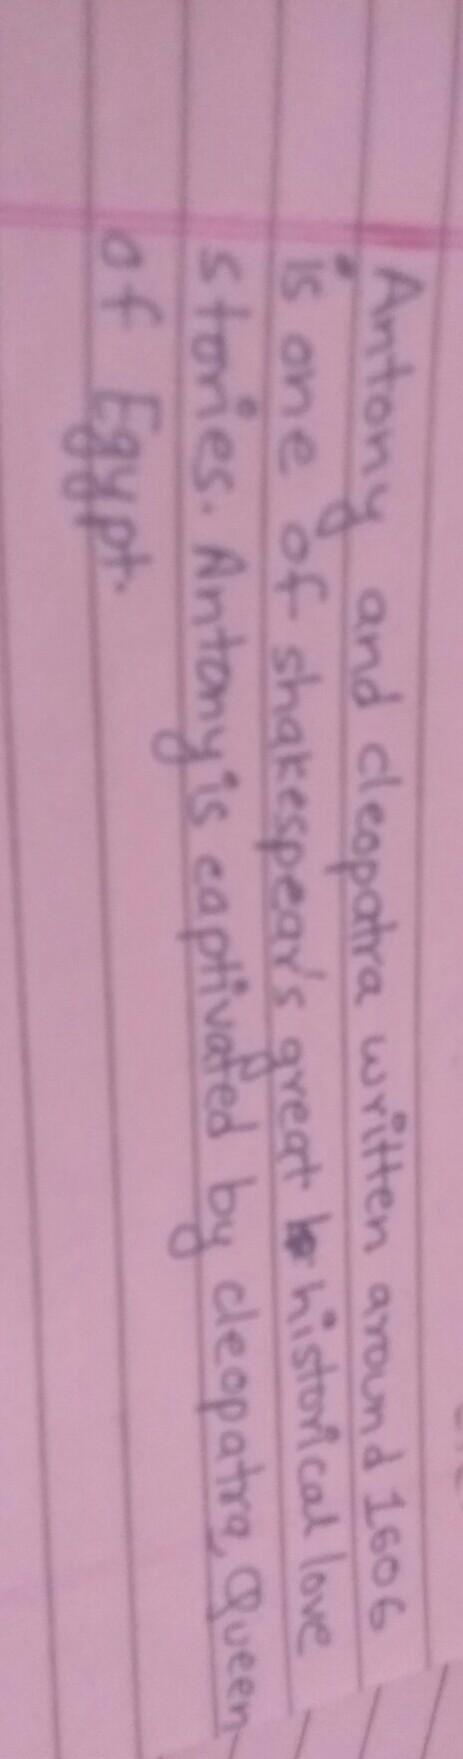 Antony and cleopatra written around 1606
is one of shakespear's great historical love
stories. Antony is captivated by cleopatra, Queen
of Egypt.